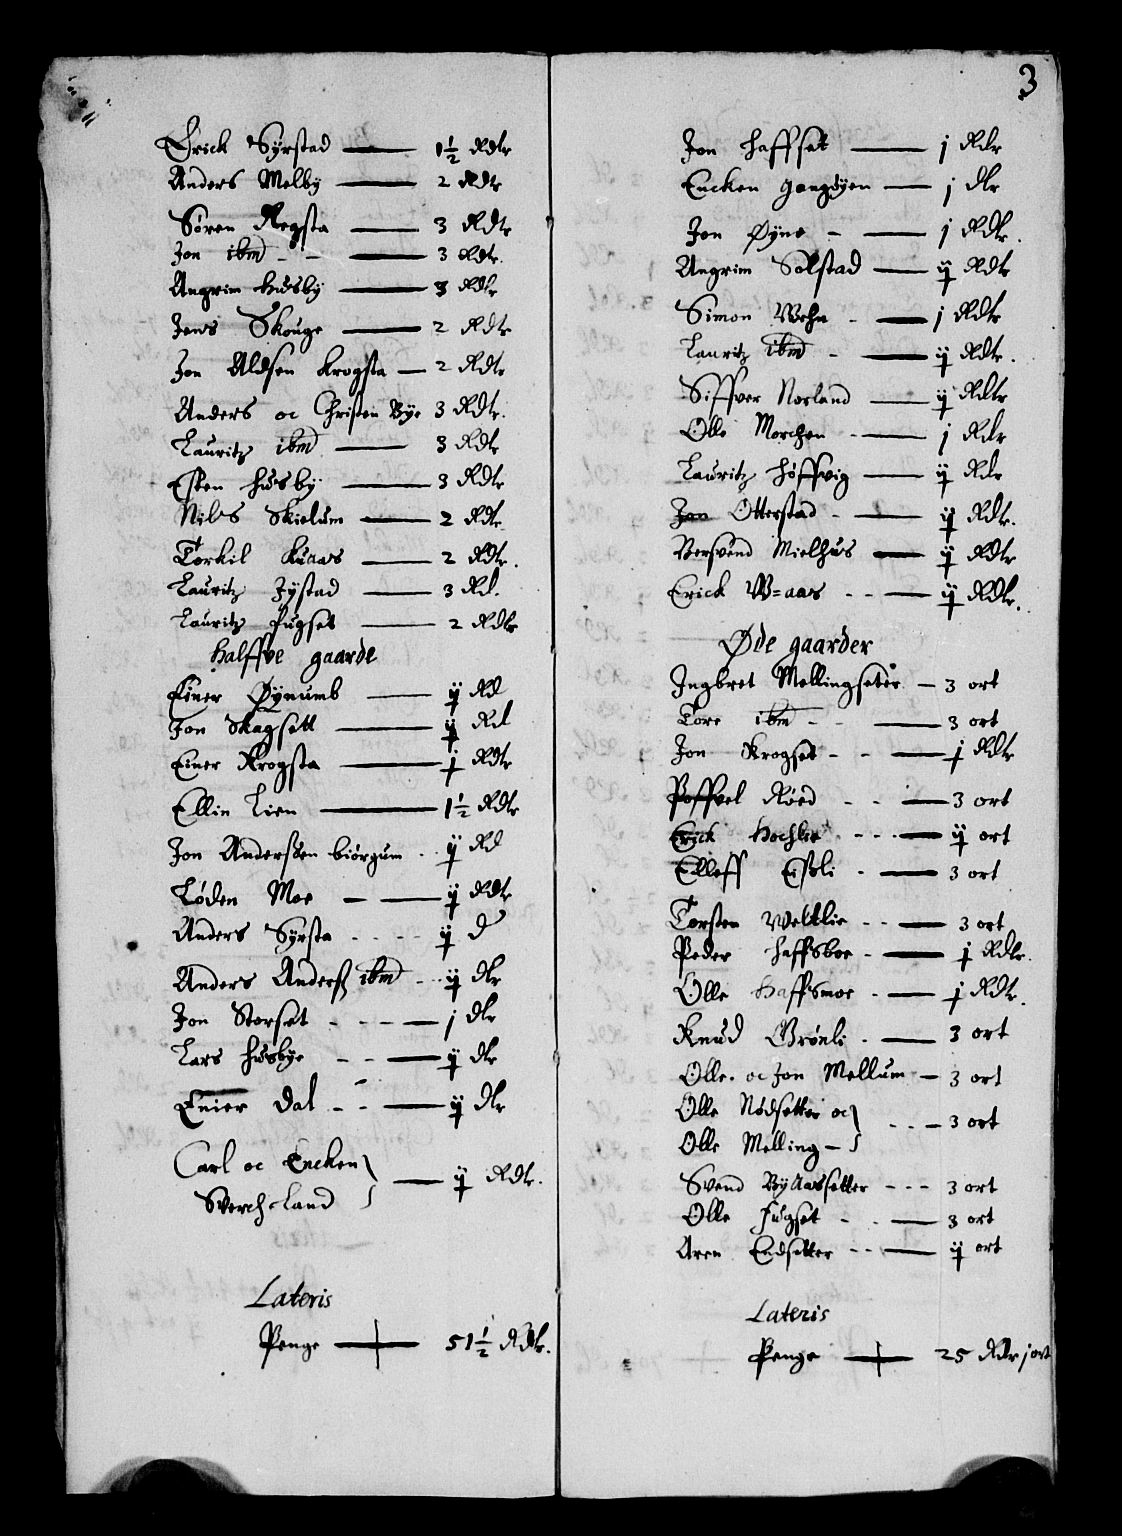 Erick Syrstad — 1½ Rdlr
Anders Melby — 2 Rdlr
Søren Regsta — 3 Rdlr
Jon ibm — 3 Rdlr.
Angrim Husby — 3 Rdlr
Jens Skouge — 2 Rdlr
Jon Aldsen Krogsta — 2 Rdlr
Anders oc Christen Bye 3 Rdlr.
Lauritz ibm — 3 Rdlr
Esten Husby — 3 Rdlr
Nils Skielum — 2 Rdlr
Torkil Kuaas — 2 Rdlr.
Lauritz Jystad — 3 Rd.
Lauritz Fugset — 2 Rdlr
Halffve gaarde
Einer Øynumb — ij Rd
Jon Skagsett — ij Rd
Einer Krogsta — j Rdlr
Ellin Lien — 1½ Rdlr
Jon Anderssen biørgum . . ij Rd
Løden Moe — — ij Rdlr
Anders Syrsta - - - - ij d
Anders Anderß ibm - - ij dlr
Jon Storset - - - — j dlr
Lars Husbye - - — ij dlr
Enier Dal - - — ij dlr
Carl oc Encken
Sverch-land } — ij Rdlr.
Lateris
Penge — 51½ Rdlr.
3
Jon Haffset — j Rdlr
Encken gangdyen — j dlr
Jon Øyne - — j Rdlr.
Angrim Solstad — ij Rdlr
Simon Wehn - — j Rdlr
Lauritz ibm - — ij Rdlr.
Siffver Norland — ij Rdlr
Olle Morchen - — j Rdlr
Lauritz Høffvig — ij Rdr
Jon Otterstad - — ij Rdlr.
Bersvend Mielhus — ij Rdlr
Erick W=aas - - — ij Rdlr.
Øde gaarder
Ingbret Mellingseter — 3 ort
Tore ibm - - — 3 ort
Jon Krogset - - — j Rdlr
Poffvel Røed - - — 3 ort
Erick Hochlie - - - — ij ort
Elleff Eisli - — 3 ort
Torsten Wettlie - - — 3 ort
Peder Haffsboe - — j Rdlr.
Olle Haffsmoe - — j Rdlr.
Knud Grønli - — 3 ort
Olle oc Jon Mellum — 3 ort
Olle Nødsetter oc
Olle Melling - } - - — 3 ort
Svend Byaassetter - - - 3 ort
Olle Fugset - - — 3 ort
Aren Endsetter - - — ij ort
Lateris
Penge — 25 Rdlr j ort